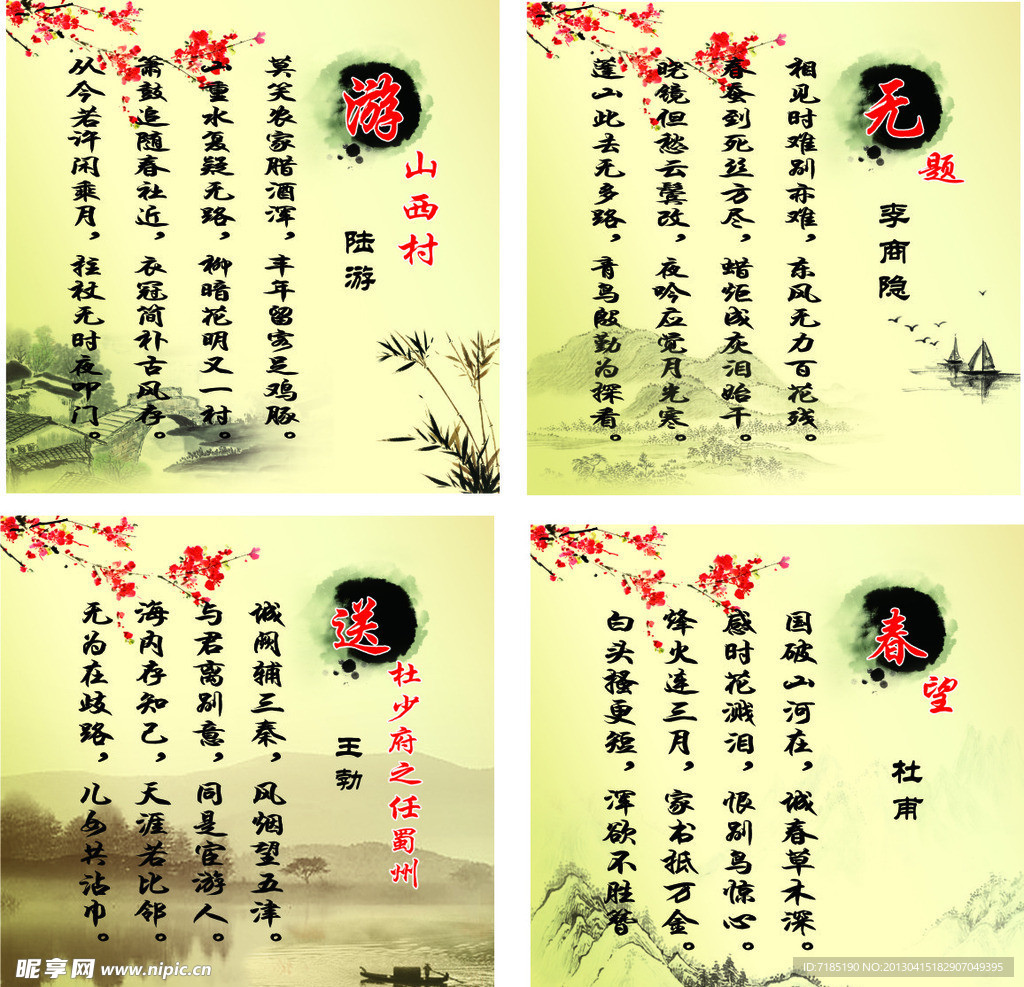 游
山西村
陆游
莫笑农家腊酒浑，丰年留客足鸡豚。
山重水复疑无路，柳暗花明又一村。
箫鼓追随春社近，衣冠简补古风存。
从今若许闲乘月，拄杖无时夜叩门。
无
题
李商隐
相见时难别亦难，东风无力百花残。
春蚕到死丝方尽，蜡炬成灰泪始干。
晓镜但愁云鬓改，夜吟应觉月光寒。
蓬山此去无多路，青鸟殷勤为探看。
送
杜少府之任蜀州
王勃
诚阙辅三秦，风烟望五津。
与君离别意，同是宦游人。
海内存知己，天涯若比邻。
无为在歧路，儿女共沾巾。
春
望
杜甫
国破山河在，诚春草木深。
感时花溅泪，恨别鸟惊心。
烽火连三月，家书抵万金。
白头搔更短，浑欲不胜簪
昵享网 www.nipic.cn
ID:7185190 NO:20130415182907049395